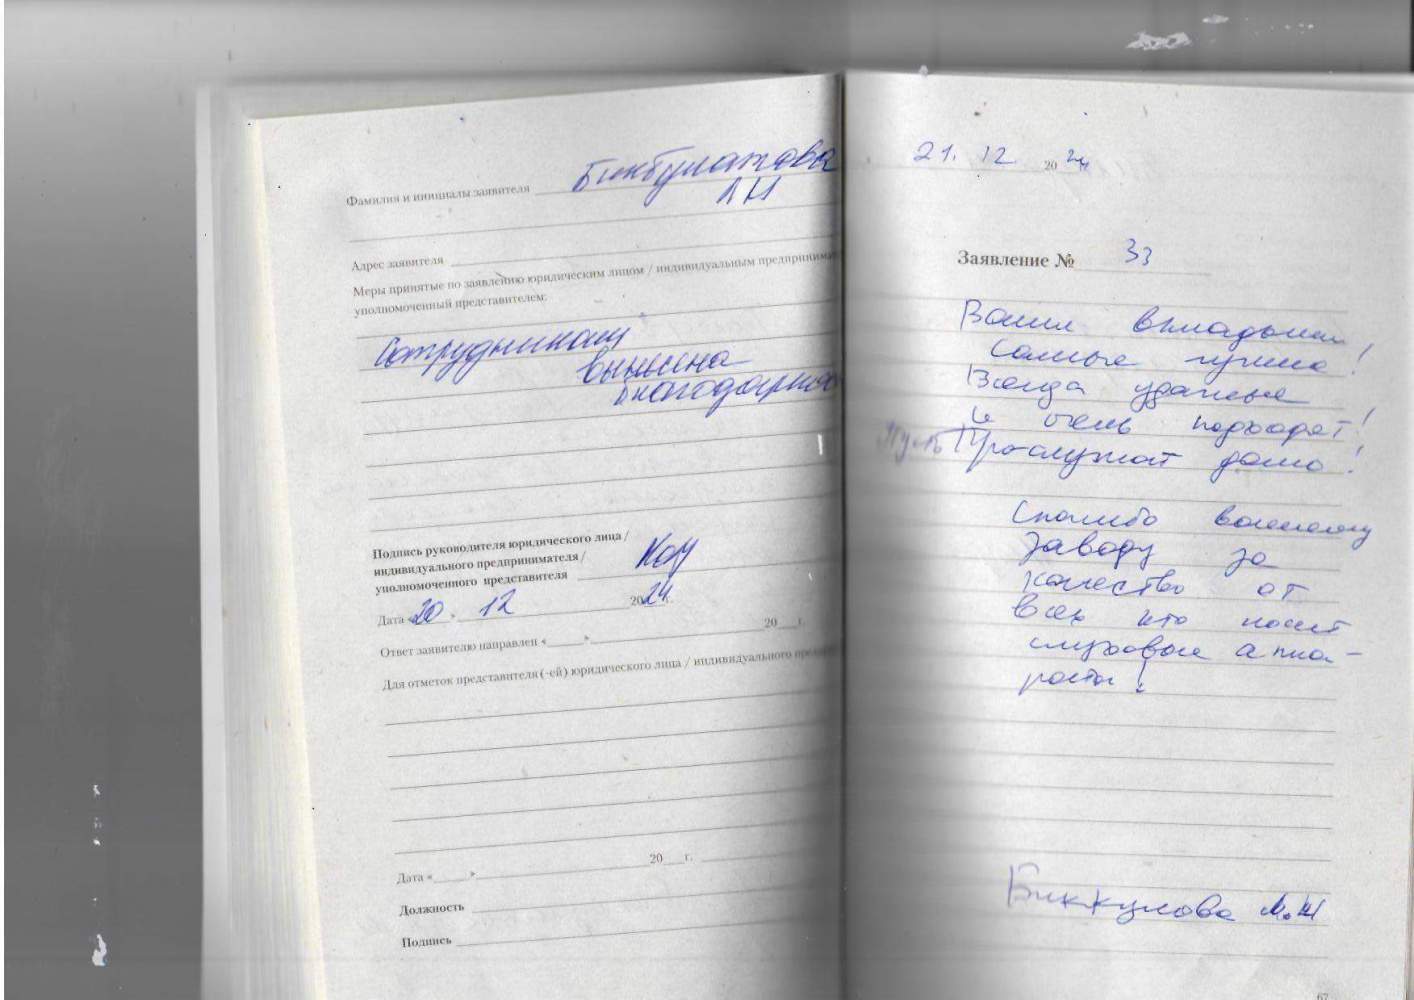 Фамилия и инициалы заявителя Бикбулатова
Л Н
Адрес заявителя
Меры принятые по заявлению юридическим лицом / индивидуальным предпринимат
уполномоченный представителем:
Сотрудникам
вынесена
благодарнос
Подпись руководителя юридического лица /
индивидуального предпринимателя /
уполномоченного представителя
Дата «20 » 12 2024 г.
Ответ заявителю направлен «____»____ 20___г.
Для отметок представителя (-ей) юридического лица / индивидуального предпр
Дата «____»____ 20___г.
Должность
Подпись
21. 12 20 24
Заявление № 33
Ваши вкладыши
самые лучшие!
Всегда удачные
и очень подходят!
Пусть Прослужат долго!
Спасибо вашему
заводу за
качество от
всех кто носит
слуховые аппа-
раты!
Биккулова М.Ш
67